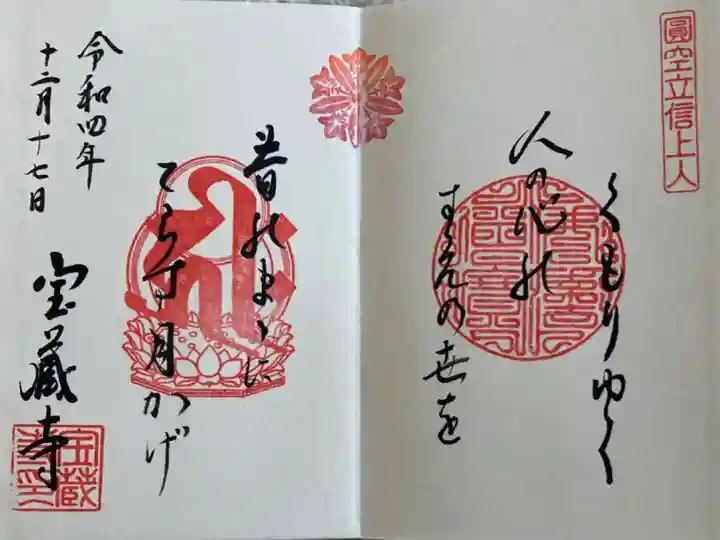 圓空立信上人
くもりゆく
人の心の
すゑの世を
昔のまゝに
てらす月かげ
令和四年
十二月十七日
宝蔵寺